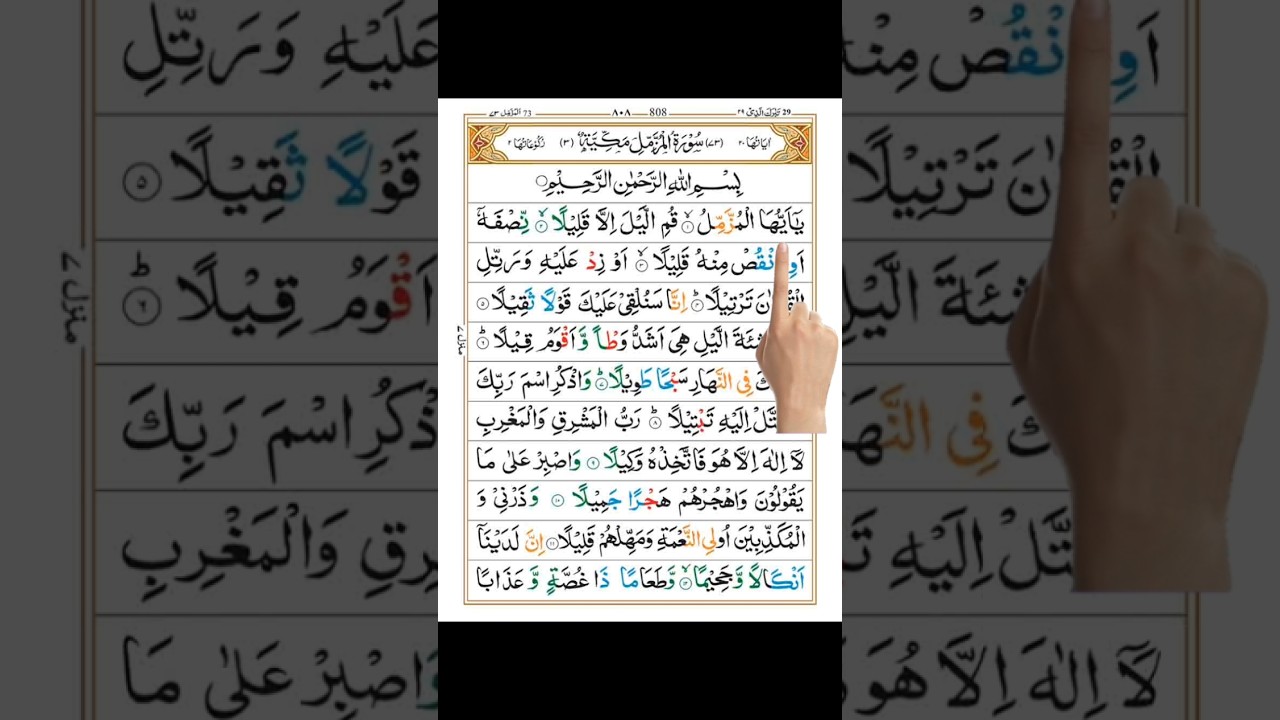 المزمل ٧٣ 73 ٨٠٨ 808 تبٰرك الذی ٢٩ 29
اٰیاتها ٢٠ (٧٣) سُوْرَةُ الْمُزَّمِّلِ مَكِّیَّةٌ (٣) ركوعاتها ٢
بِسْمِ اللّٰهِ الرَّحْمٰنِ الرَّحِیْمِ
یٰۤاَیُّهَا الْمُزَّمِّلُ ۙ﴿١﴾ قُمِ الَّیْلَ اِلَّا قَلِیْلًا ۙ﴿٢﴾ نِّصْفَهٗۤ
اَوِ انْقُصْ مِنْهُ قَلِیْلًا ۙ﴿٣﴾ اَوْ زِدْ عَلَیْهِ وَ رَتِّلِ
تَرْتِیْلًا ؕ﴿٤﴾ اِنَّا سَنُلْقِیْ عَلَیْكَ قَوْلًا ثَقِیْلًا ﴿٥﴾
الَّیْلِ هِیَ اَشَدُّ وَطْاً وَّ اَقْوَمُ قِیْلًا ؕ﴿٦﴾
فِی النَّهَارِ سَبْحًا طَوِیْلًا ؕ﴿٧﴾ وَ اذْكُرِ اسْمَ رَبِّكَ
اِلَیْهِ تَبْتِیْلًا ؕ﴿٨﴾ رَبُّ الْمَشْرِقِ وَ الْمَغْرِبِ
لَاۤ اِلٰهَ اِلَّا هُوَ فَاتَّخِذْهُ وَكِیْلًا ﴿٩﴾ وَ اصْبِرْ عَلٰی مَا
یَقُوْلُوْنَ وَ اهْجُرْهُمْ هَجْرًا جَمِیْلًا ﴿١٠﴾ وَ ذَرْنِیْ وَ
الْمُكَذِّبِیْنَ اُولِی النَّعْمَةِ وَ مَهِّلْهُمْ قَلِیْلًا ﴿١١﴾ اِنَّ لَدَیْنَاۤ
اَنْكَالًا وَّ جَحِیْمًا ۙ﴿١٢﴾ وَّ طَعَامًا ذَا غُصَّةٍ وَّ عَذَابًا
منزل ٧